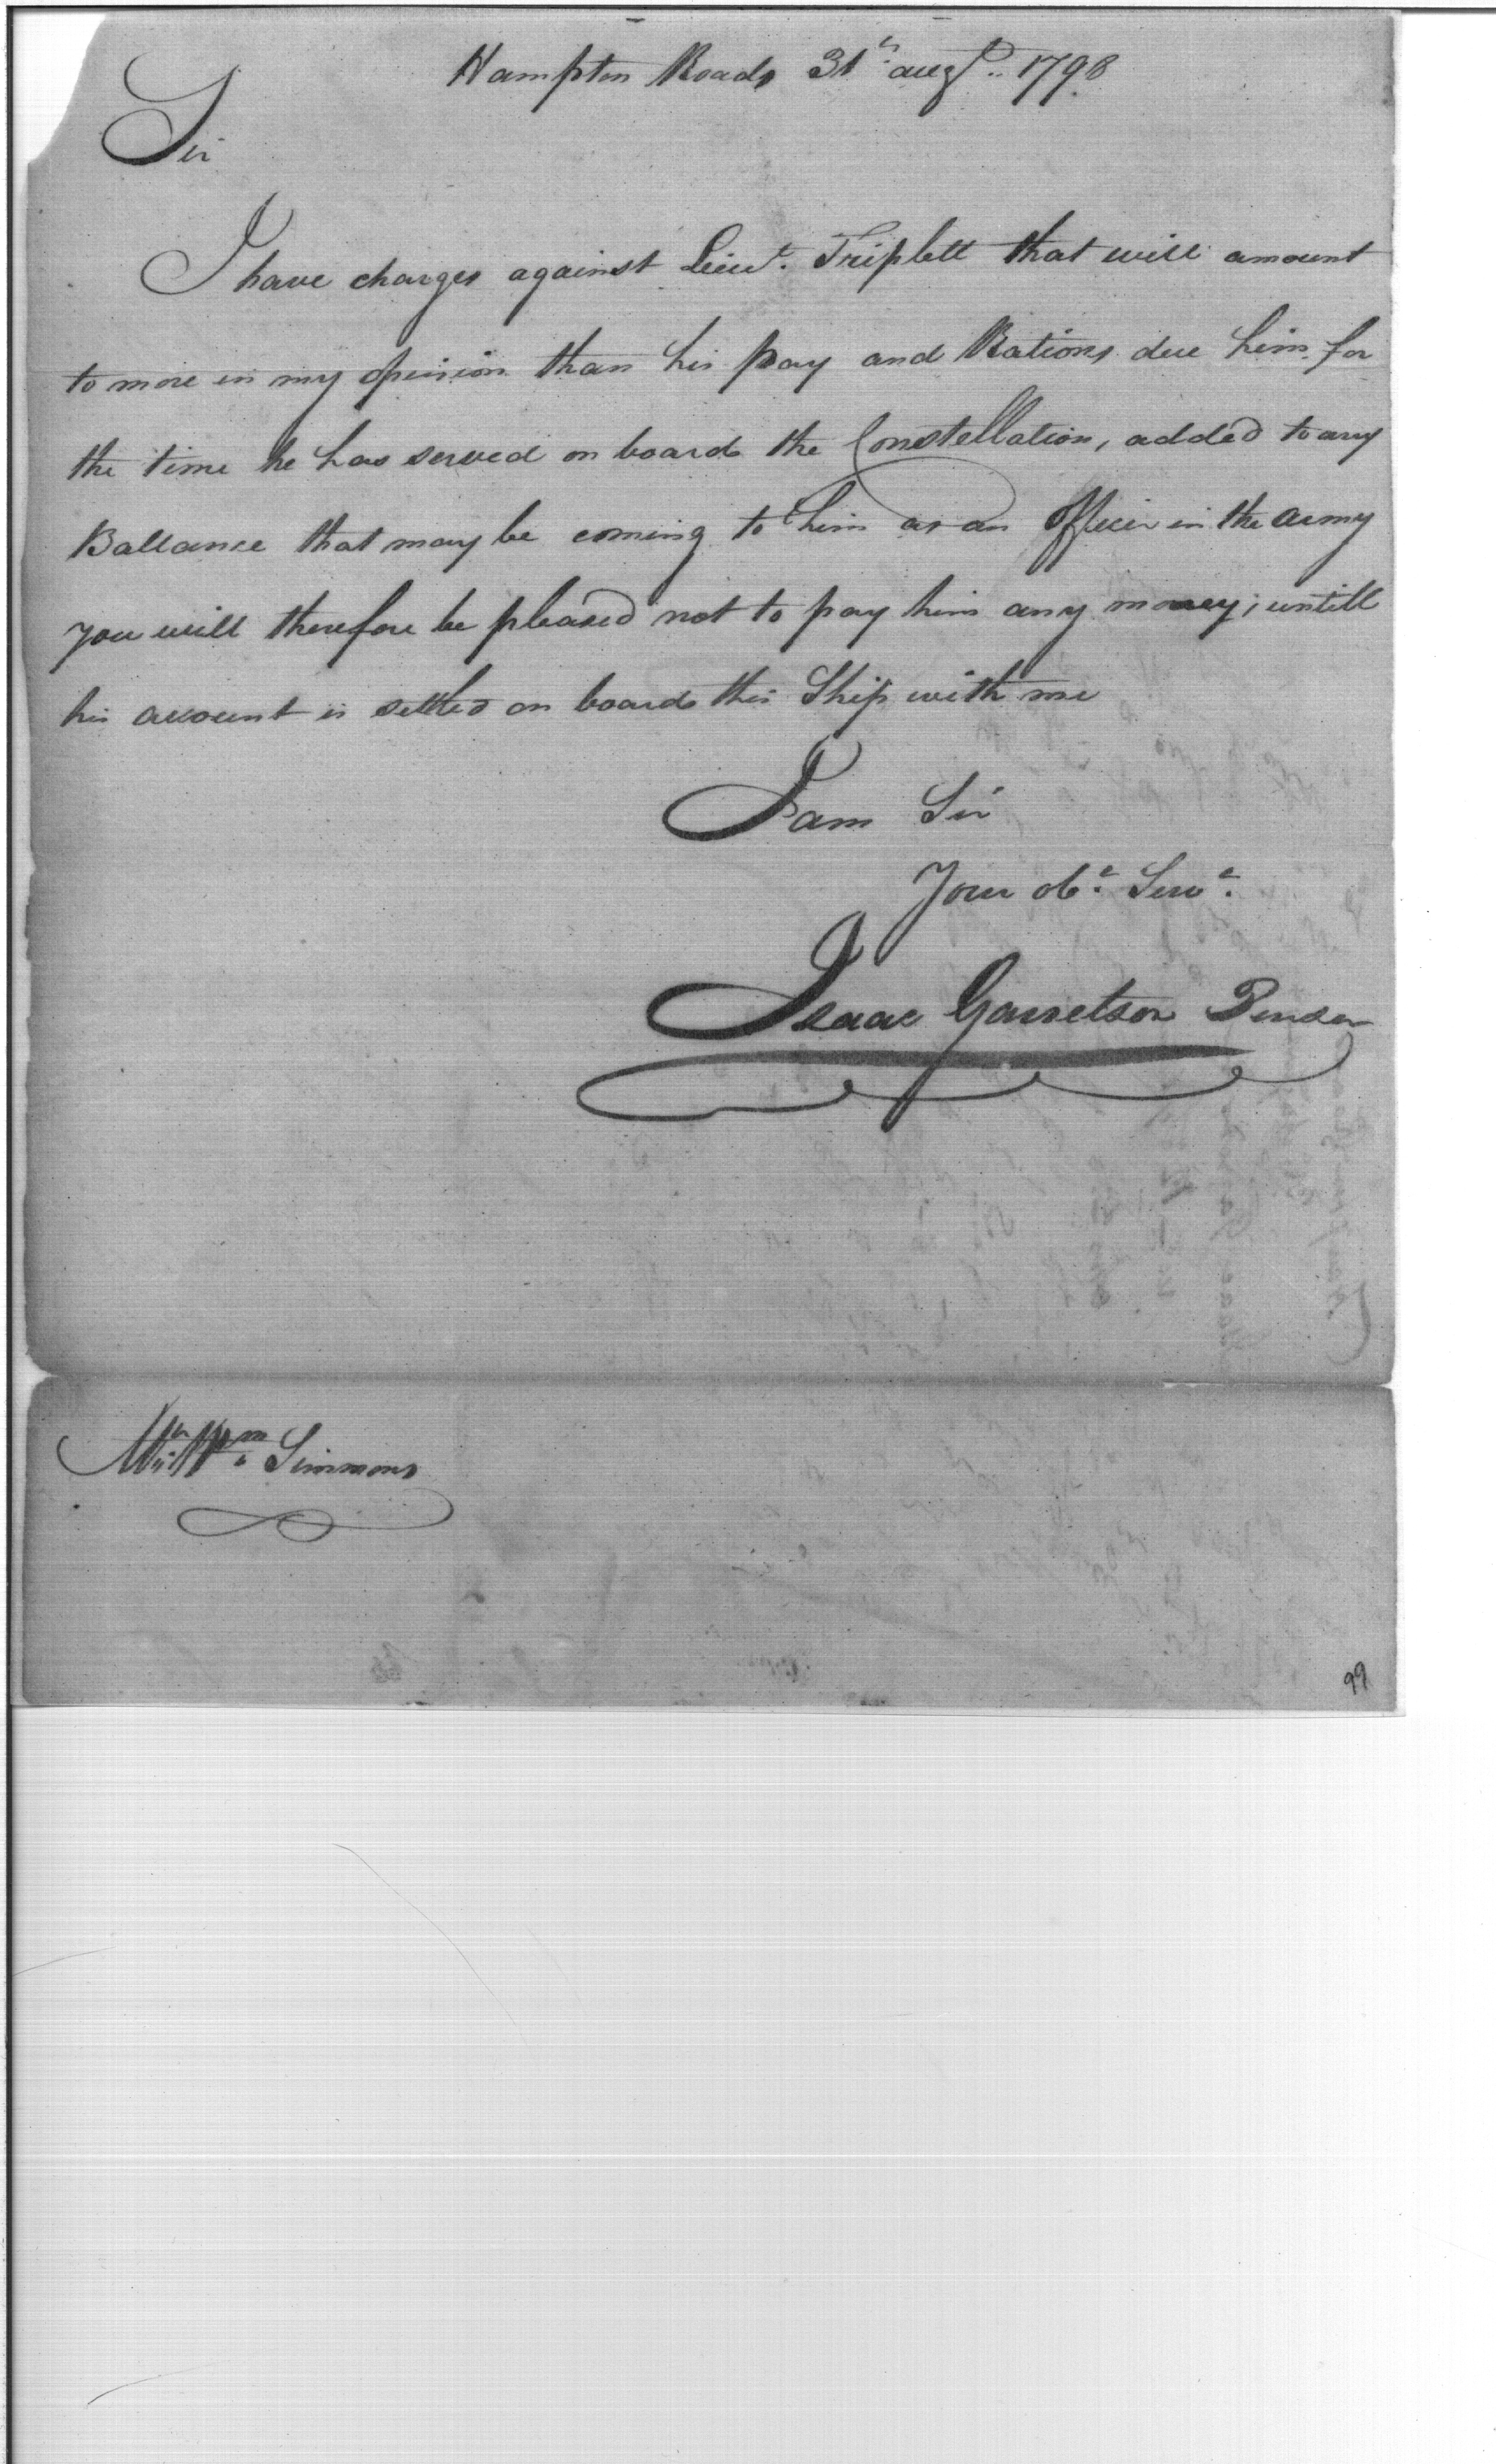 Hampton Roads 31st augt. 1798
Sir
I have charges against Lieut. Triplett that will amount
to more in my opinion than his pay and Rations due him for
the time he has served on board the Constellation, added to any
Ballance that may be coming to him as an officer in the army
you will therefore be pleased not to pay him any money; untill
his account is settled on board this Ship with me
I am Sir
Your obt. Servt.
Isaac Garretson Purser
Mr. Wm. Simmons
99